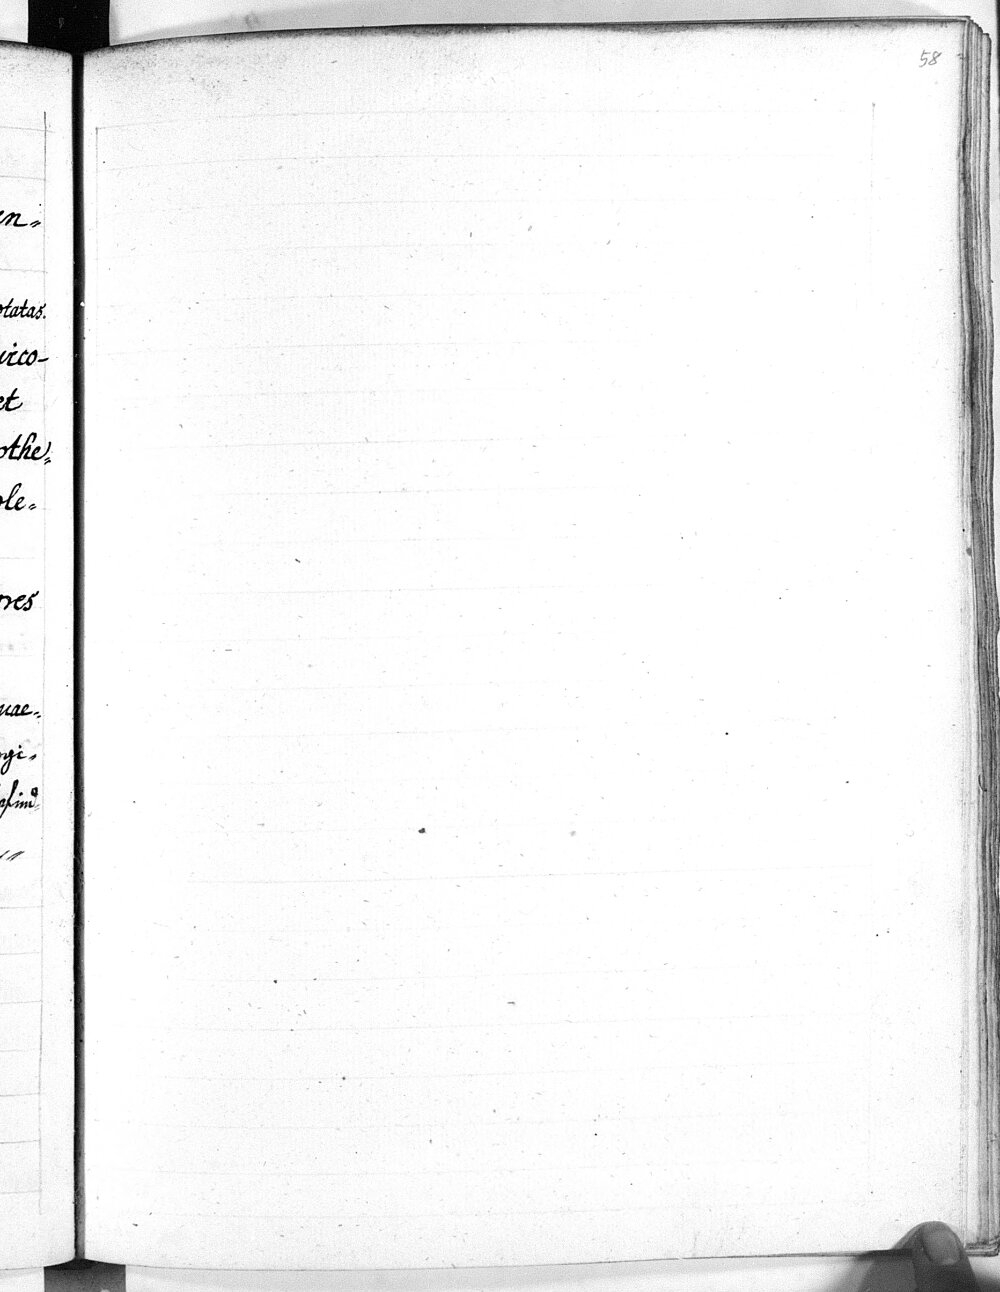 58
en„
otatas.
vico-
et
othe„
ole„
res
uae„
gi„